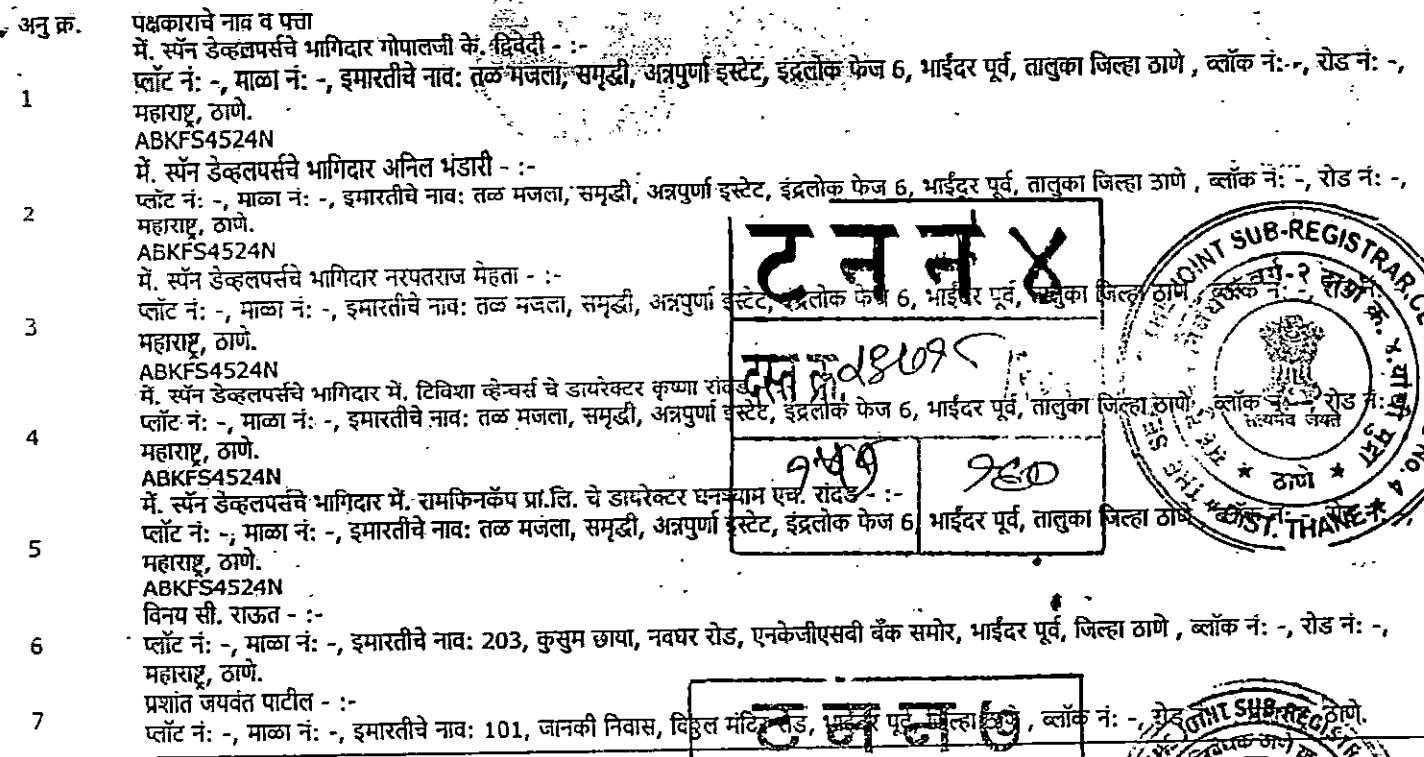 अनु क्र. पक्षकाराचे नाव व पत्ता
में. स्पॅन डेव्हलपर्सचे भागिदार गोपालजी के. द्विवेदी - :-
प्लॉट नं: -, माळा नं: -, इमारतीचे नाव: तळ मजला, समृद्धी, अन्नपुर्णा इस्टेट, इंद्रलोक फेज 6, भाईंदर पूर्व, तालुका जिल्हा ठाणे , ब्लॉक नं: -, रोड नं: -,
1
महाराष्ट्र, ठाणे.
ABKFS4524N
में. स्पॅन डेव्हलपर्सचे भागिदार अनिल भंडारी - :-
प्लॉट नं: -, माळा नं: -, इमारतीचे नाव: तळ मजला, समृद्धी, अन्नपुर्णा इस्टेट, इंद्रलोक फेज 6, भाईंदर पूर्व, तालुका जिल्हा ठाणे , ब्लॉक नं: -, रोड नं: -,
2
महाराष्ट्र, ठाणे.
ABKFS4524N
में. स्पॅन डेव्हलपर्सचे भागिदार नरपतराज मेहता - :-
प्लॉट नं: -, माळा नं: -, इमारतीचे नाव: तळ मजला, समृद्धी, अन्नपुर्णा इस्टेट, इंद्रलोक फेज 6, भाईंदर पूर्व, तालुका जिल्हा ठाणे
3
महाराष्ट्र, ठाणे.
ABKFS4524N
में. स्पॅन डेव्हलपर्सचे भागिदार में. टिविशा व्हेन्चर्स चे डायरेक्टर कृष्णा
प्लॉट नं: -, माळा नं: -, इमारतीचे नाव: तळ मजला, समृद्धी, अन्नपुर्णा इस्टेट, इंद्रलोक फेज 6, भाईंदर पूर्व, तालुका जिल्हा ठाणे , ब्लॉक नं: -, रोड नं:
4
महाराष्ट्र, ठाणे.
ABKFS4524N
में. स्पॅन डेव्हलपर्सचे भागिदार में. रामफिनकॅप प्रा.लि. चे डायरेक्टर घनश्याम एच. रांदड - :-
प्लॉट नं: -, माळा नं: -, इमारतीचे नाव: तळ मजला, समृद्धी, अन्नपुर्णा इस्टेट, इंद्रलोक फेज 6, भाईंदर पूर्व, तालुका जिल्हा ठाणे
5
महाराष्ट्र, ठाणे.
ABKFS4524N
विनय सी. राऊत - :-
6 प्लॉट नं: -, माळा नं: -, इमारतीचे नाव: 203, कुसुम छाया, नवघर रोड, एनकेजीएसबी बँक समोर, भाईंदर पूर्व, जिल्हा ठाणे , ब्लॉक नं: -, रोड नं: -,
महाराष्ट्र, ठाणे.
प्रशांत जयवंत पाटील - :-
7 प्लॉट नं: -, माळा नं: -, इमारतीचे नाव: 101, जानकी निवास, विठ्ठल मंदिर रोड, भाईंदर पूर्व, जिल्हा ठाणे , ब्लॉक नं: -, रोड नं: ठाणे.
ट न न ४
दस्त क्र.
१६०
JOINT SUB-REGISTRAR
सत्यमेव जयते
ठाणे
DIST. THANE
NO. 4
ट न न ७
JOINT SUB-REG